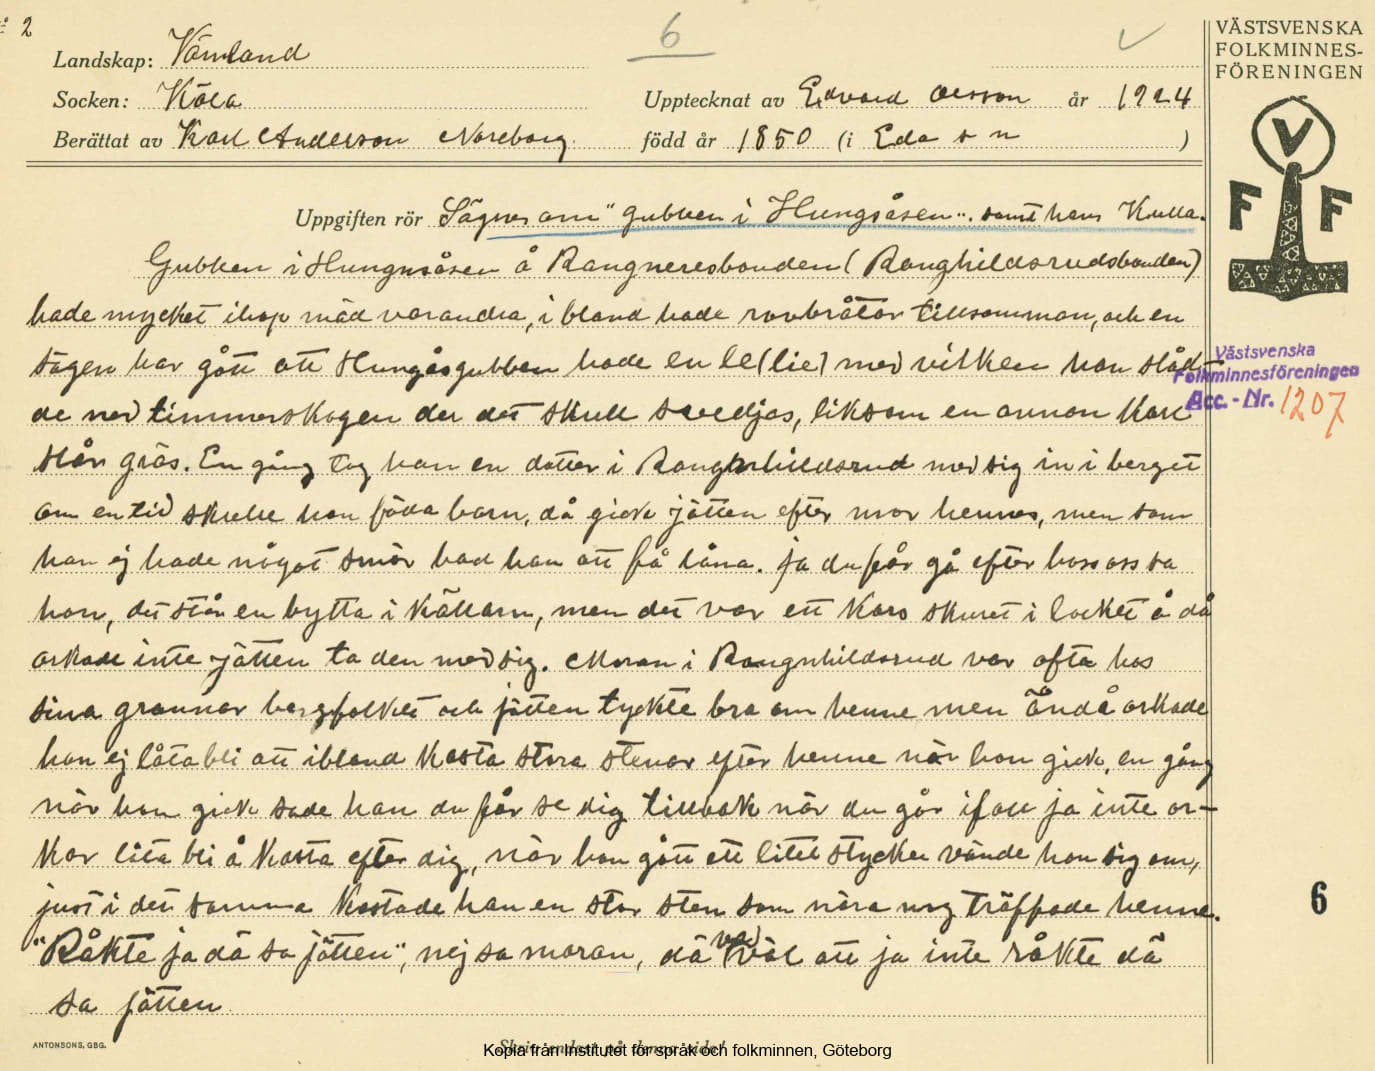 № 2
6
Landskap: Värmland
Socken: Köla
Upptecknat av Edvard Olsson år 1924
Berättat av Karl Anderson Noreborg.
född år 1850 (i Eda s n )
VÄSTSVENSKA
FOLKMINNES-
FÖRENINGEN
V
F F
Uppgiften rör Sägnen om "gubben i Hungsåsen". samt hans Kulla.
Gubben i Hungnsåsen å Rangneresbonden (Ranghildsrudsbonden)
hade mycket ihop mäd varandra, i bland hade rovbråtar tillsamman, och en
sägen har gått att Hungåsgubben hade en le (lie) med vilken han slåd-
de ned timmerskogen der det skull svedjas, liksom en annan Karl
slår gräs. En gång tog han en dotter i Rangnhildsrud med sig in i berget
om en tid skulle hon föda barn, då gick jätten efter mor hennes, men som
han ej hade något smör bad han att få låna. ja du får gå efter hoss oss sa
hon, det står en bytta i Källarn, men det var ett Kors skuret i locket å då
orkade inte jätten ta den med sig. Moran i Rangnhildsrud var ofta hos
sina grannar bergfolket och jätten tyckte bra om henne men ändå orkade
han ej låta bli att ibland Kasta stora stenar efter henne när hon gick, en gång
när hon gick sade han du får se dig tillbak när du går ifall ja inte or-
kar låta bli å Kasta efter dig, när hon gått ett litet stycke vände hon sig om,
just i det samma Kastade han en stor sten som nära nog träffade henne.
"Råkte ja dä sa jätten", nej sa moran, dä va väl att ja inte råkte dä
sa jätten
Västsvenska
Folkminnesföreningen
Acc.-Nr. 1207
6
ANTONSONS, GBG.
Skriv endast på denna sida!
Kopia från Institutet för språk och folkminnen, Göteborg